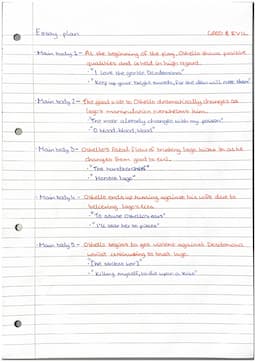 Essay plan GOOD & EVIL
Main body 1 - At the beginning of the play, Othello shows positive
qualities and is held in high regard.
- "I love the gentle Desdemona"
- "Keep up your bright swords, for the dew will rust them"
Main body 2 - The good side to Othello dramatically changes as
Iago's manipulation overwhelms him.
- "The moor already changes with my poison"
- "O blood, blood, blood"
Main body 3 - Othello's fatal flaw of trusting Iago kicks in as he
changes from good to evil.
- "
- "Honest Iago"
Main body 4 - Othello ends up turning against his wife due to
believing Iago's lies.
- "To abuse Othello's ears"
- "I'll tear her to pieces"
Main body 5 - Othello begins to get violent against Desdemona
whilst continuing to trust Iago.
- "[He strikes her]"
- "Killing myself, to die upon a kiss"